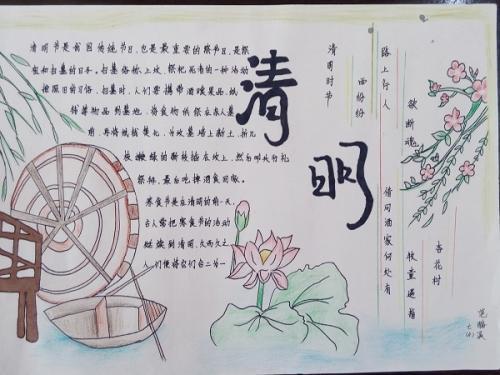 清明节是我国传统节日,也是最重要的祭节日,是祭
祖和扫墓的日子。扫墓俗称上坟,祭祀死者的一种活动
按照旧的习俗,扫墓时,人们要携带酒食果品、纸
钱等物品到墓地,将食物供祭在亲人墓
前,再将纸钱焚化,为坟墓培上新土,折几
枝嫩绿的新枝插在坟上,然后叩头行礼
祭拜,最后吃掉酒食回家。
寒食节是在清明的前一天,
古人常把寒食节的活动
延续到清明,久而久之
人们便将它们合二为一
清
明
清明时节
雨纷纷
路上行人
欲断魂
借问酒家何处有
牧童遥指
杏花村